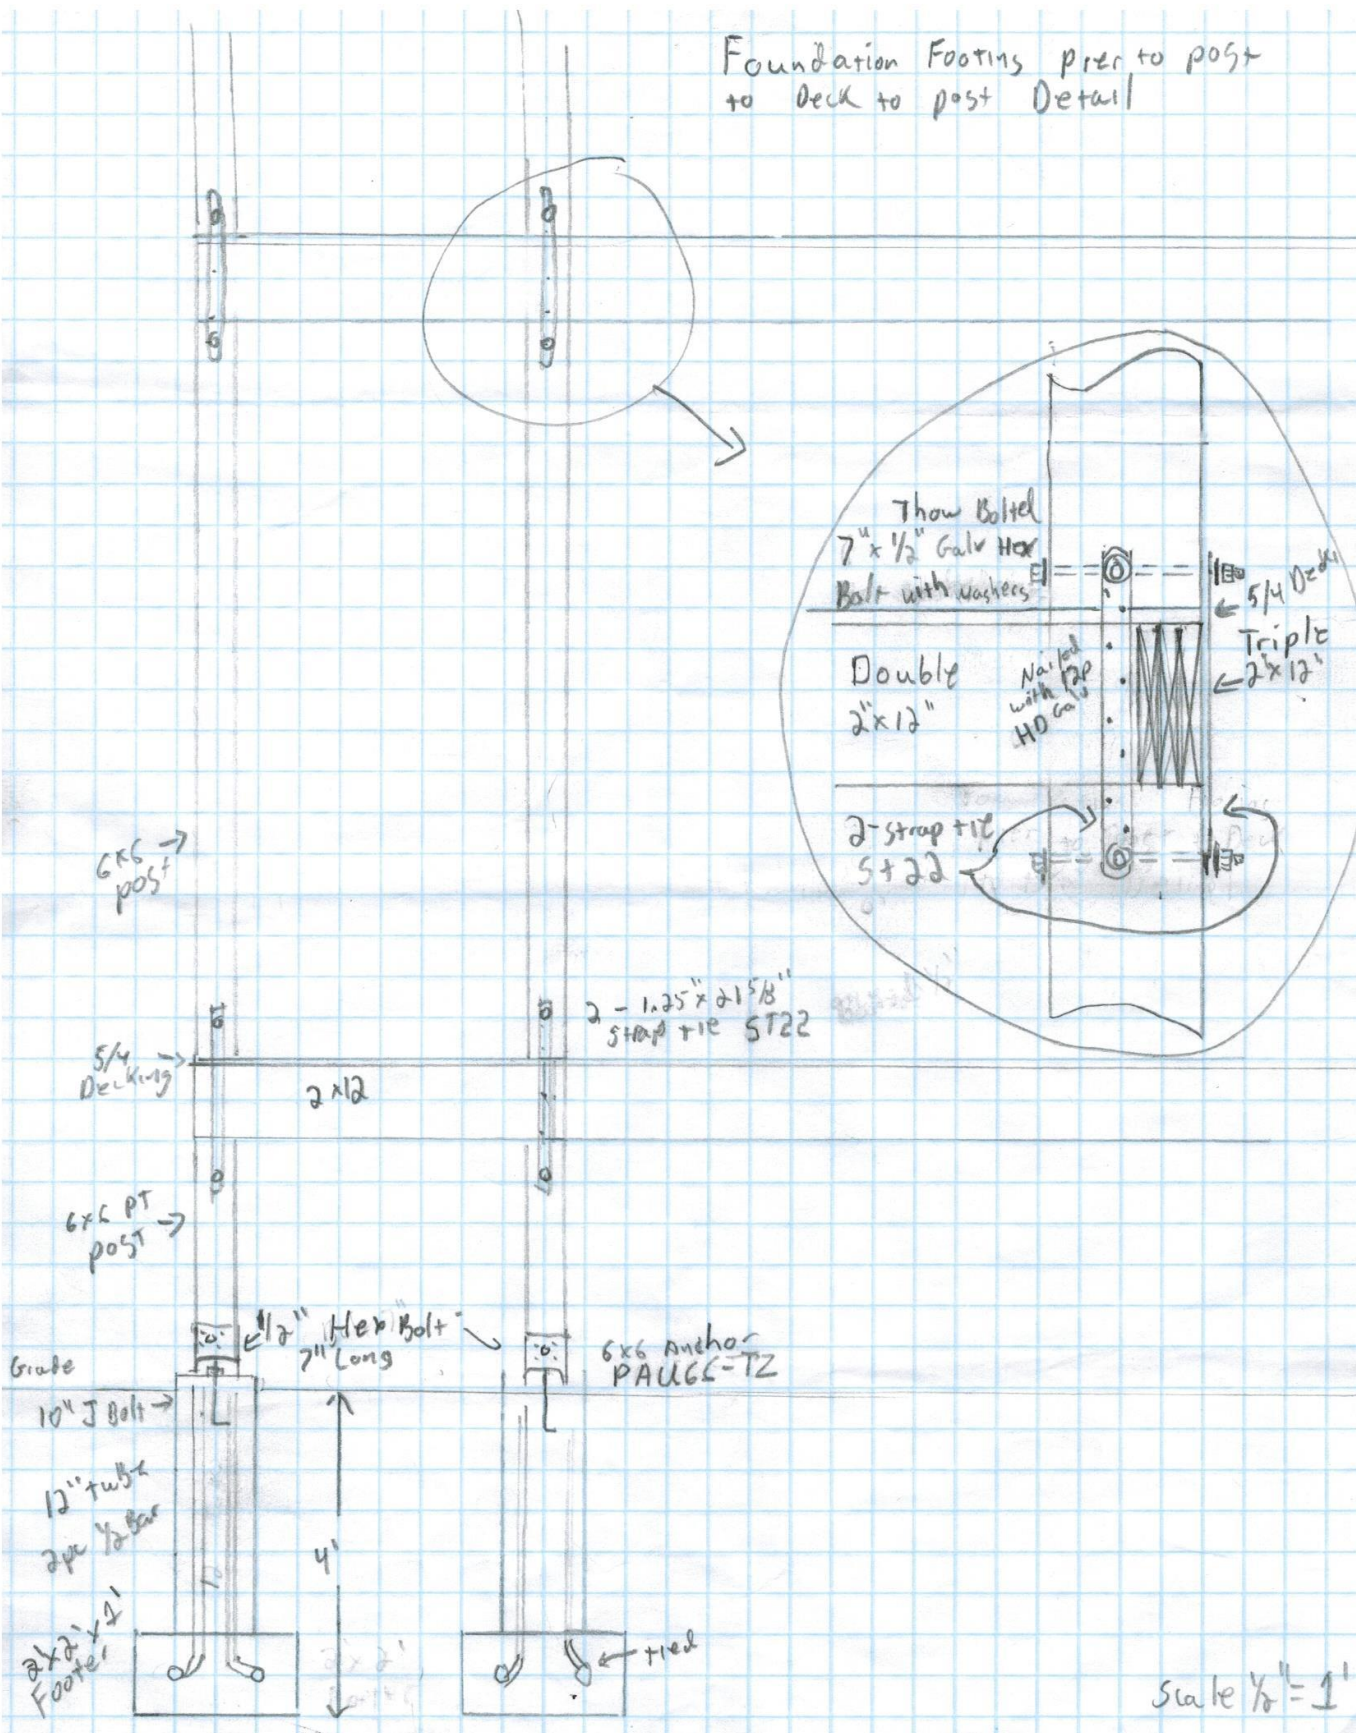 Foundation Footing pier to post
to Deck to post Detail
Thow Bolted
7" x 1/2" Galv Hex
Bolt with washers
5/4 Deck
Triple
2"x12"
Double
2"x12"
Nailed
with 12p
HD Galv
2-strap tie
St22
6x6
post
2 - 1.25" x 21 5/8"
strap tie ST22
5/4
Decking
2x12
6x6 PT
post
1/2" Hex Bolt
7" Long
6x6 Anchor
PAU66-TZ
Grade
10" J Bolt
12" tube
2pc 1/2 Bar
4'
2'x2'x1'
Footer
tied
Scale 1/2" = 1'